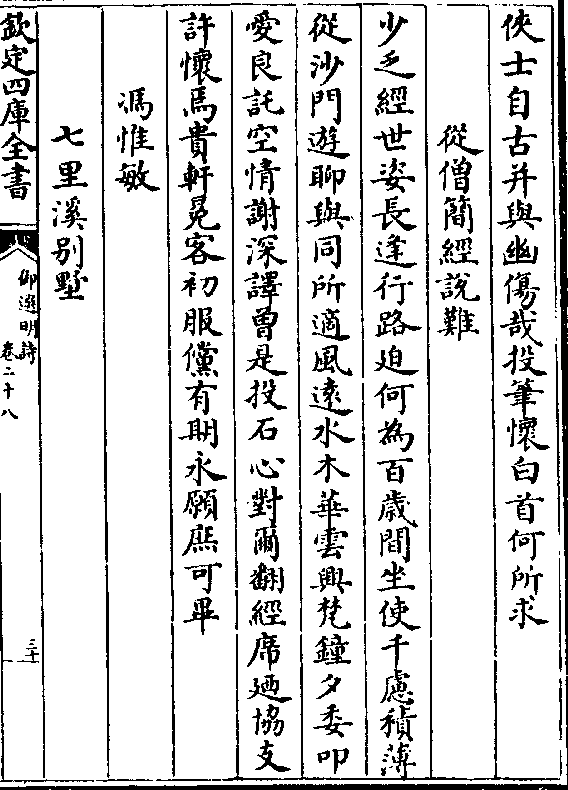 俠士自古并與幽傷哉投筆懷白首何所求
從僧簡經說難
少乏經世姿長逢行路迫何為百歳間坐使千慮積薄
從沙門遊聊與同所適風遠水木華雲興梵鐘夕委叩
愛良託空情謝深譯曽是投石心對爾翻經席廼協支
許懷焉貴軒冕客初服儻有期永願庶可畢
馮惟敏
七里溪别墅
欽定四庫全書
御選明詩
卷二十八
三十